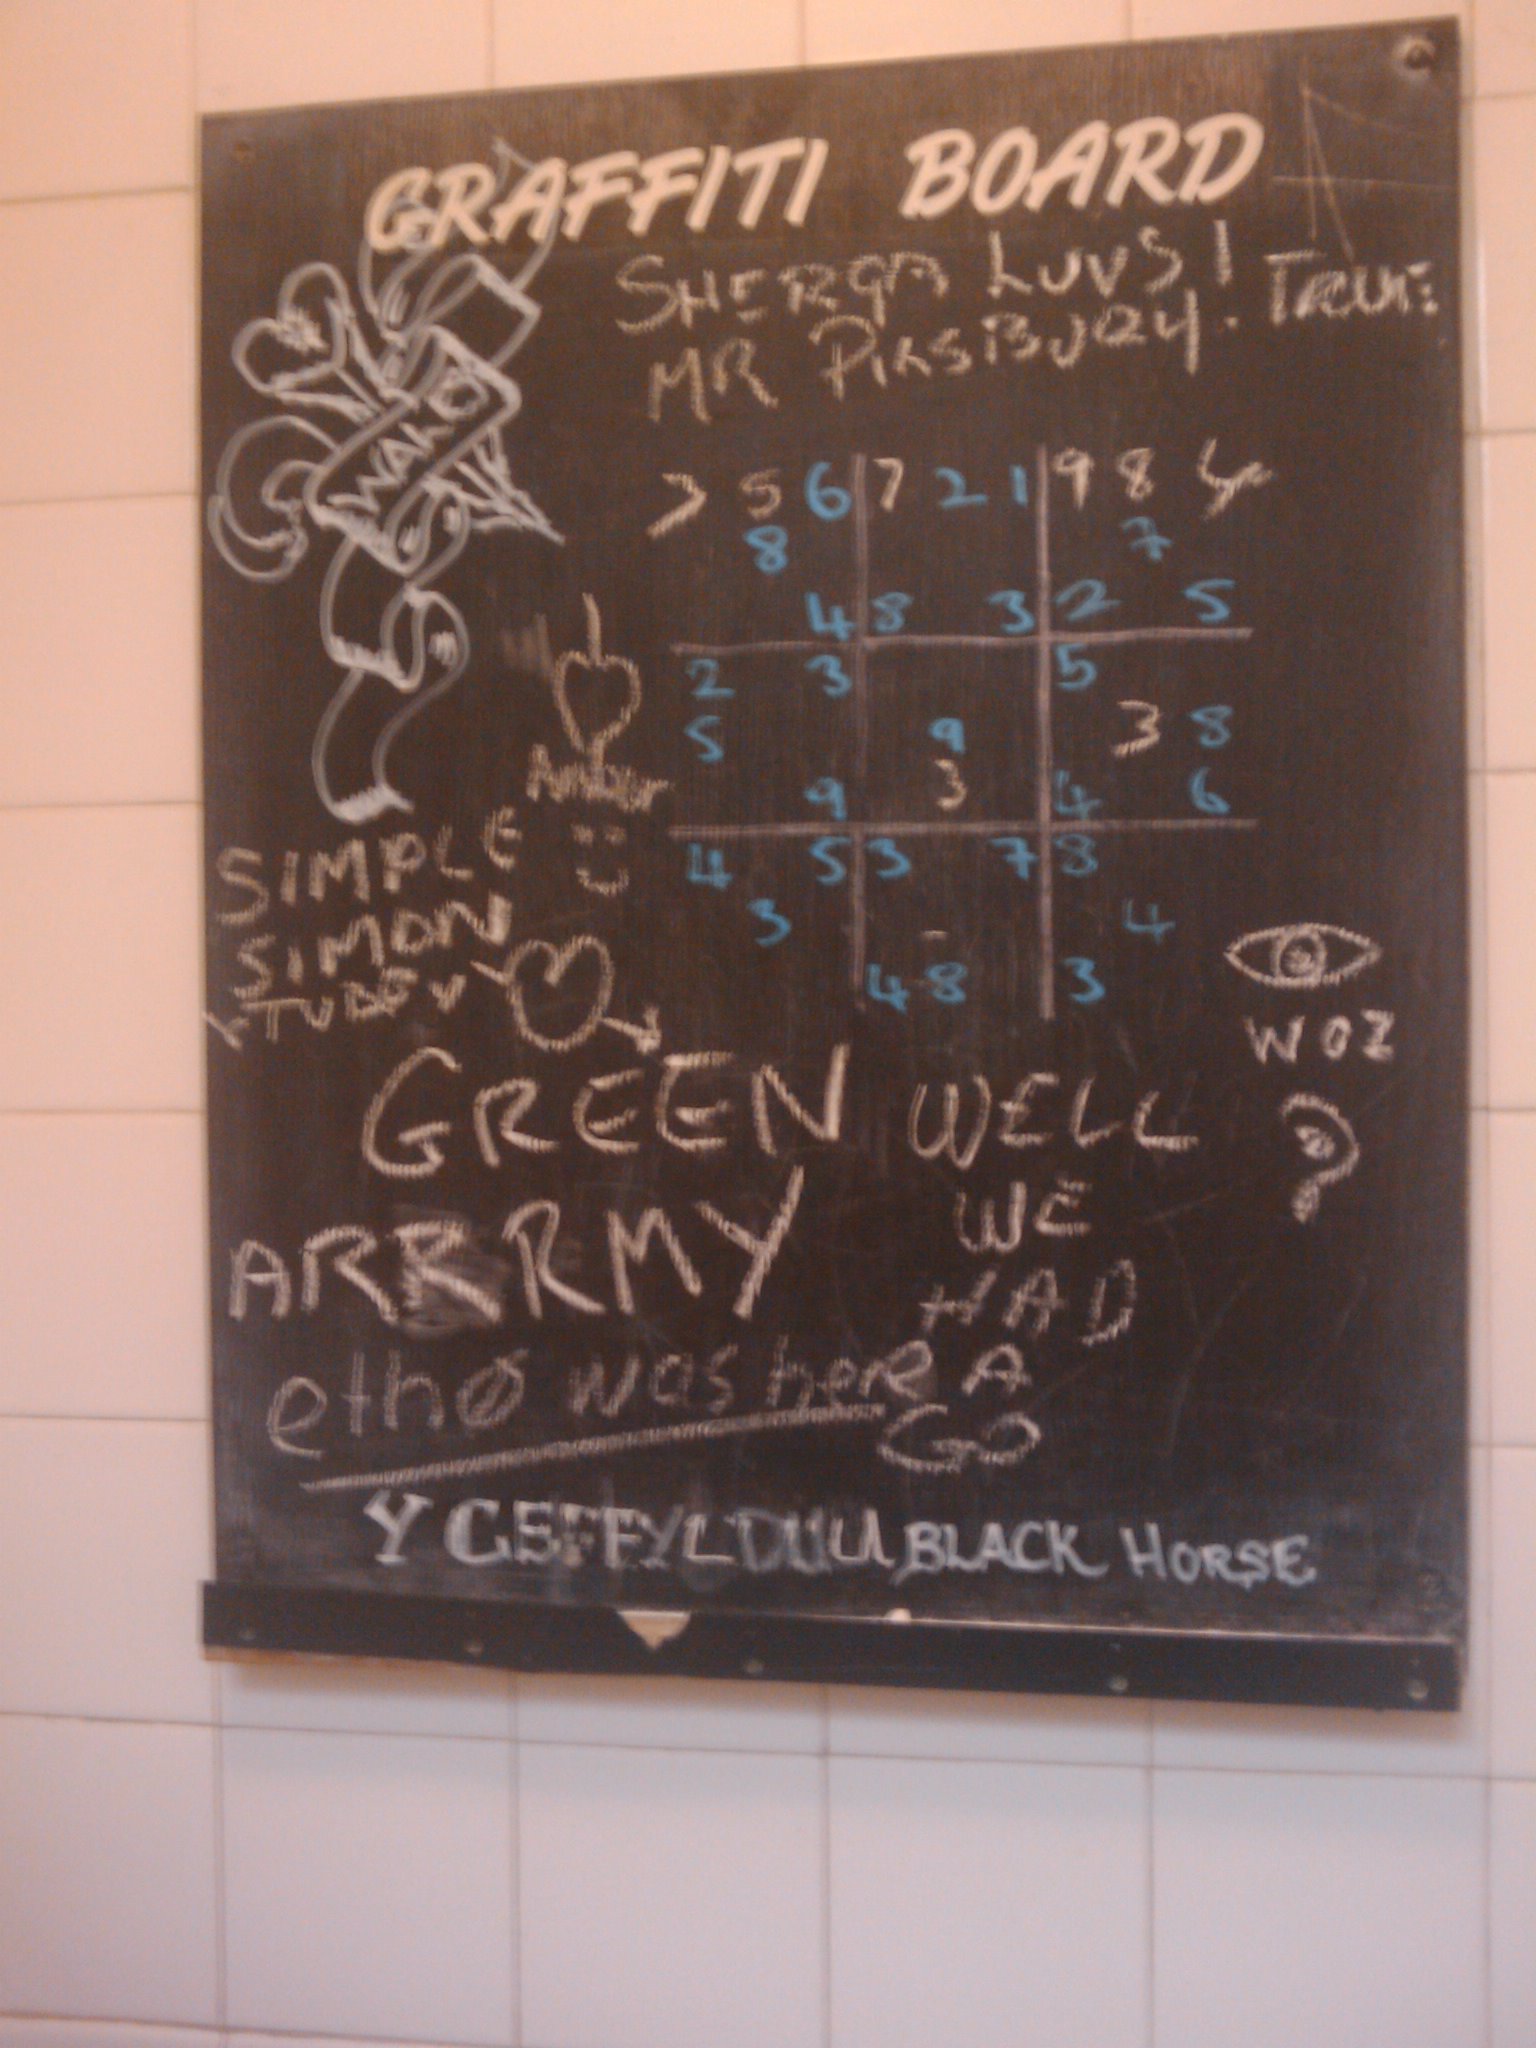 GRAFFITI BOARD
SHERGA LUVS!
MR PILSIBURY. TRUE
WAKO
3 5 6 7 2 1 9 8 4
8 7
4 8 3 2 5
2 3 5
5 9 3 8
9 3 4 6
4 5 3 7 8
3 4
4 8 3
SIMPLE
SIMON
WOZ
?
GREEN
ARRRMY
WELL
WE
HAD
A
GO
etho was here
Y CEFFYL DUU BLACK HORSE